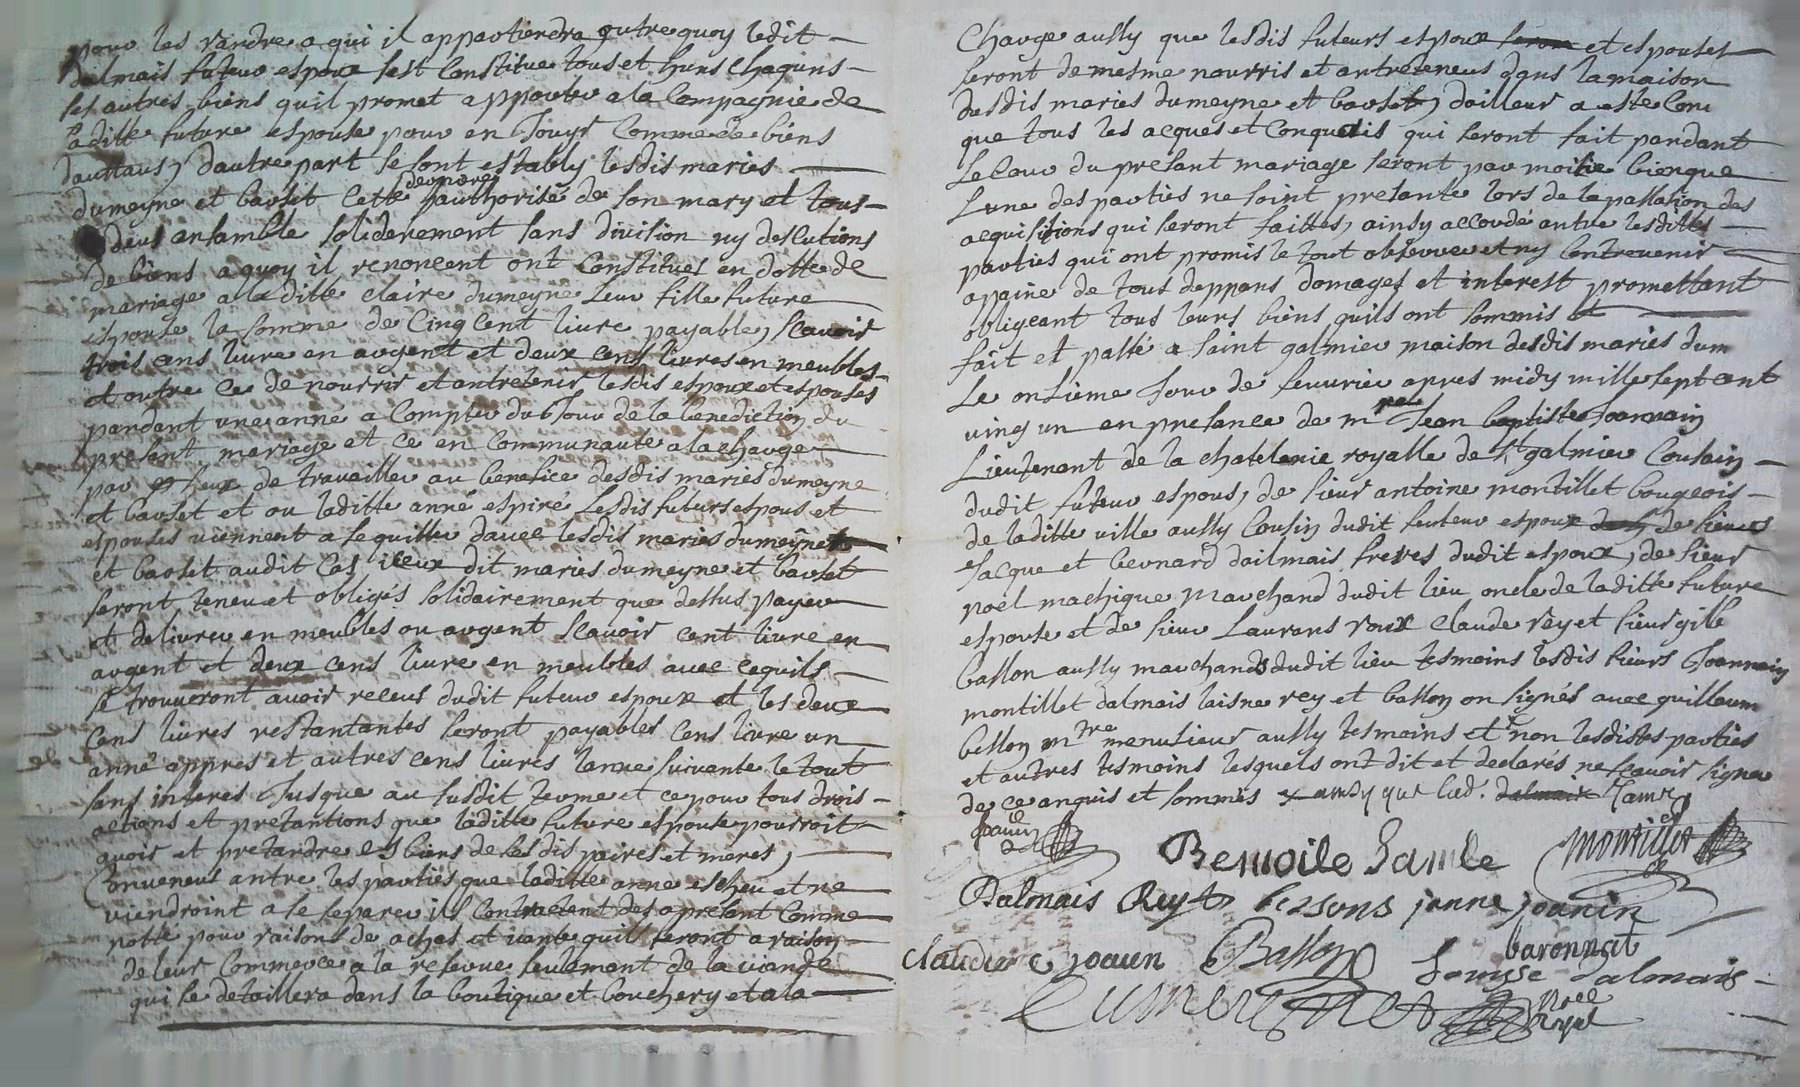 pour les randre a qui il appartiendra outre quoy ledit
dalmais futeur espoux sest constitue tous et huns chaquns
ses autres biens quil promet apporter a la Compagnie de
laditte future espouse pour en Jouyr Comme de biens
dauttaus, dautre part se sont estably lesdis maries
dumeyne et barlet cette derniere authorisé de son mary et tous
deus ansamble soliderement sans division ny deslutions
de biens a quoy il renoncent ont Constitues en dotte de
mariage a la ditte Claire dumeyne leur fille future
espouse la somme de Cinq Cent livre payable, scavoir
trois cens livre en argent et deux cens livres en meubles
et outre ce de nourrir et antretenir lesdis espoux et espouses
pandant une anné a Compter du Jour de la benediction du
presant mariage et ce en Communaute a la charge
par eux de travailler au benefice desdis maries dumeyne
et barlet et ou laditte anné espiré lesdis futurs espous et
espouses viennent a se quitter davec lesdis maries dumeyne
et barlet audit Cas iceux dit maries dumeyne et barlet
seront teneu et obligés solidairement que dessus payer
et delivrer en meubles ou argent scavoir cent livre en
argent et deux cens livre en meubles avec cequils
se trouveront avoir receus dudit futeur espoux et les deux
cens livres restantantes seront payables cens livre un
anné appres et autres cens livres lanne suivante le tout
sans interes Jusque au susdit terme et ce pour tous drois
actions et pretantions que laditte future espouse pourroit
avoir et pretandre es biens de sesdis paires et meres,
Conveneus antre les parties que laditte anne escheu et ne
viendroint a se separer ils Contractent des a presant Comme
pour raisons de achas et vante quil seront a raison
de leur Commerce a la reserve seulement de la viande
qui se detaillera dans la boutique et bouchery et a la
Charge aussy que lesdis futeurs espoux et espouses
seront de mesme nourris et antreteneus dans la maison
desdis maries dumeyne et barlet, dailleur a este Con
que tous les acques et Conquetis qui seront fait pandant
le Cour du presant mariage seront par moitie bienque
Lune des parties ne soint presante lors de la passation des
acquisitions qui seront faittes, ainsy accordé antre lesdittes
parties qui ont promis le tout observer et ny Contrevenir
a paine de tous deppans domages et interest promettant
obligeant tous leurs biens quils ont sommis et
fait et passé a saint galmier maison desdis maries dum
Le onsieme Jour de fevvrier apres midy mille sept cent
ving un en presance de mre Jean baptiste Joannin
Lieutenant de la chatelenie royalle de st galmier Cousin
dudit futeur espous, de sieur antoine montillet bougeois
de laditte ville aussy Cousin dudit futeur espoux de sieurs
Jacque et bernard dailmais freres dudit espoux, de sieur
noel machique marchand dudit lieu oncle de laditte future
espouse et de sieur Laurans roux Claude rey et sieur gille
ballon aussy marchands dudit lieu tesmoins lesdis sieurs Joannin
montillet dalmais laisne rey et ballon on signés avec guilleaum
bellon mtre menusieur aussy tesmoins et non lesdites parties
et autres tesmoins lesquels ont dit et declarés ne scavoir signer
de ce anquis et sommés
montillet
Dalmais Rey bessons janne joanin
claudir joanin Ballon baronnat
Dalmais